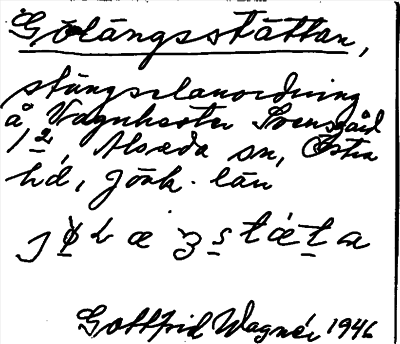 Gölängsstättan,
stängselanordning
å Vagnhester Svensgård
1 2, Alseda sn, Östra
hd, Jönk. län
Gottfrid Wagnér 1946